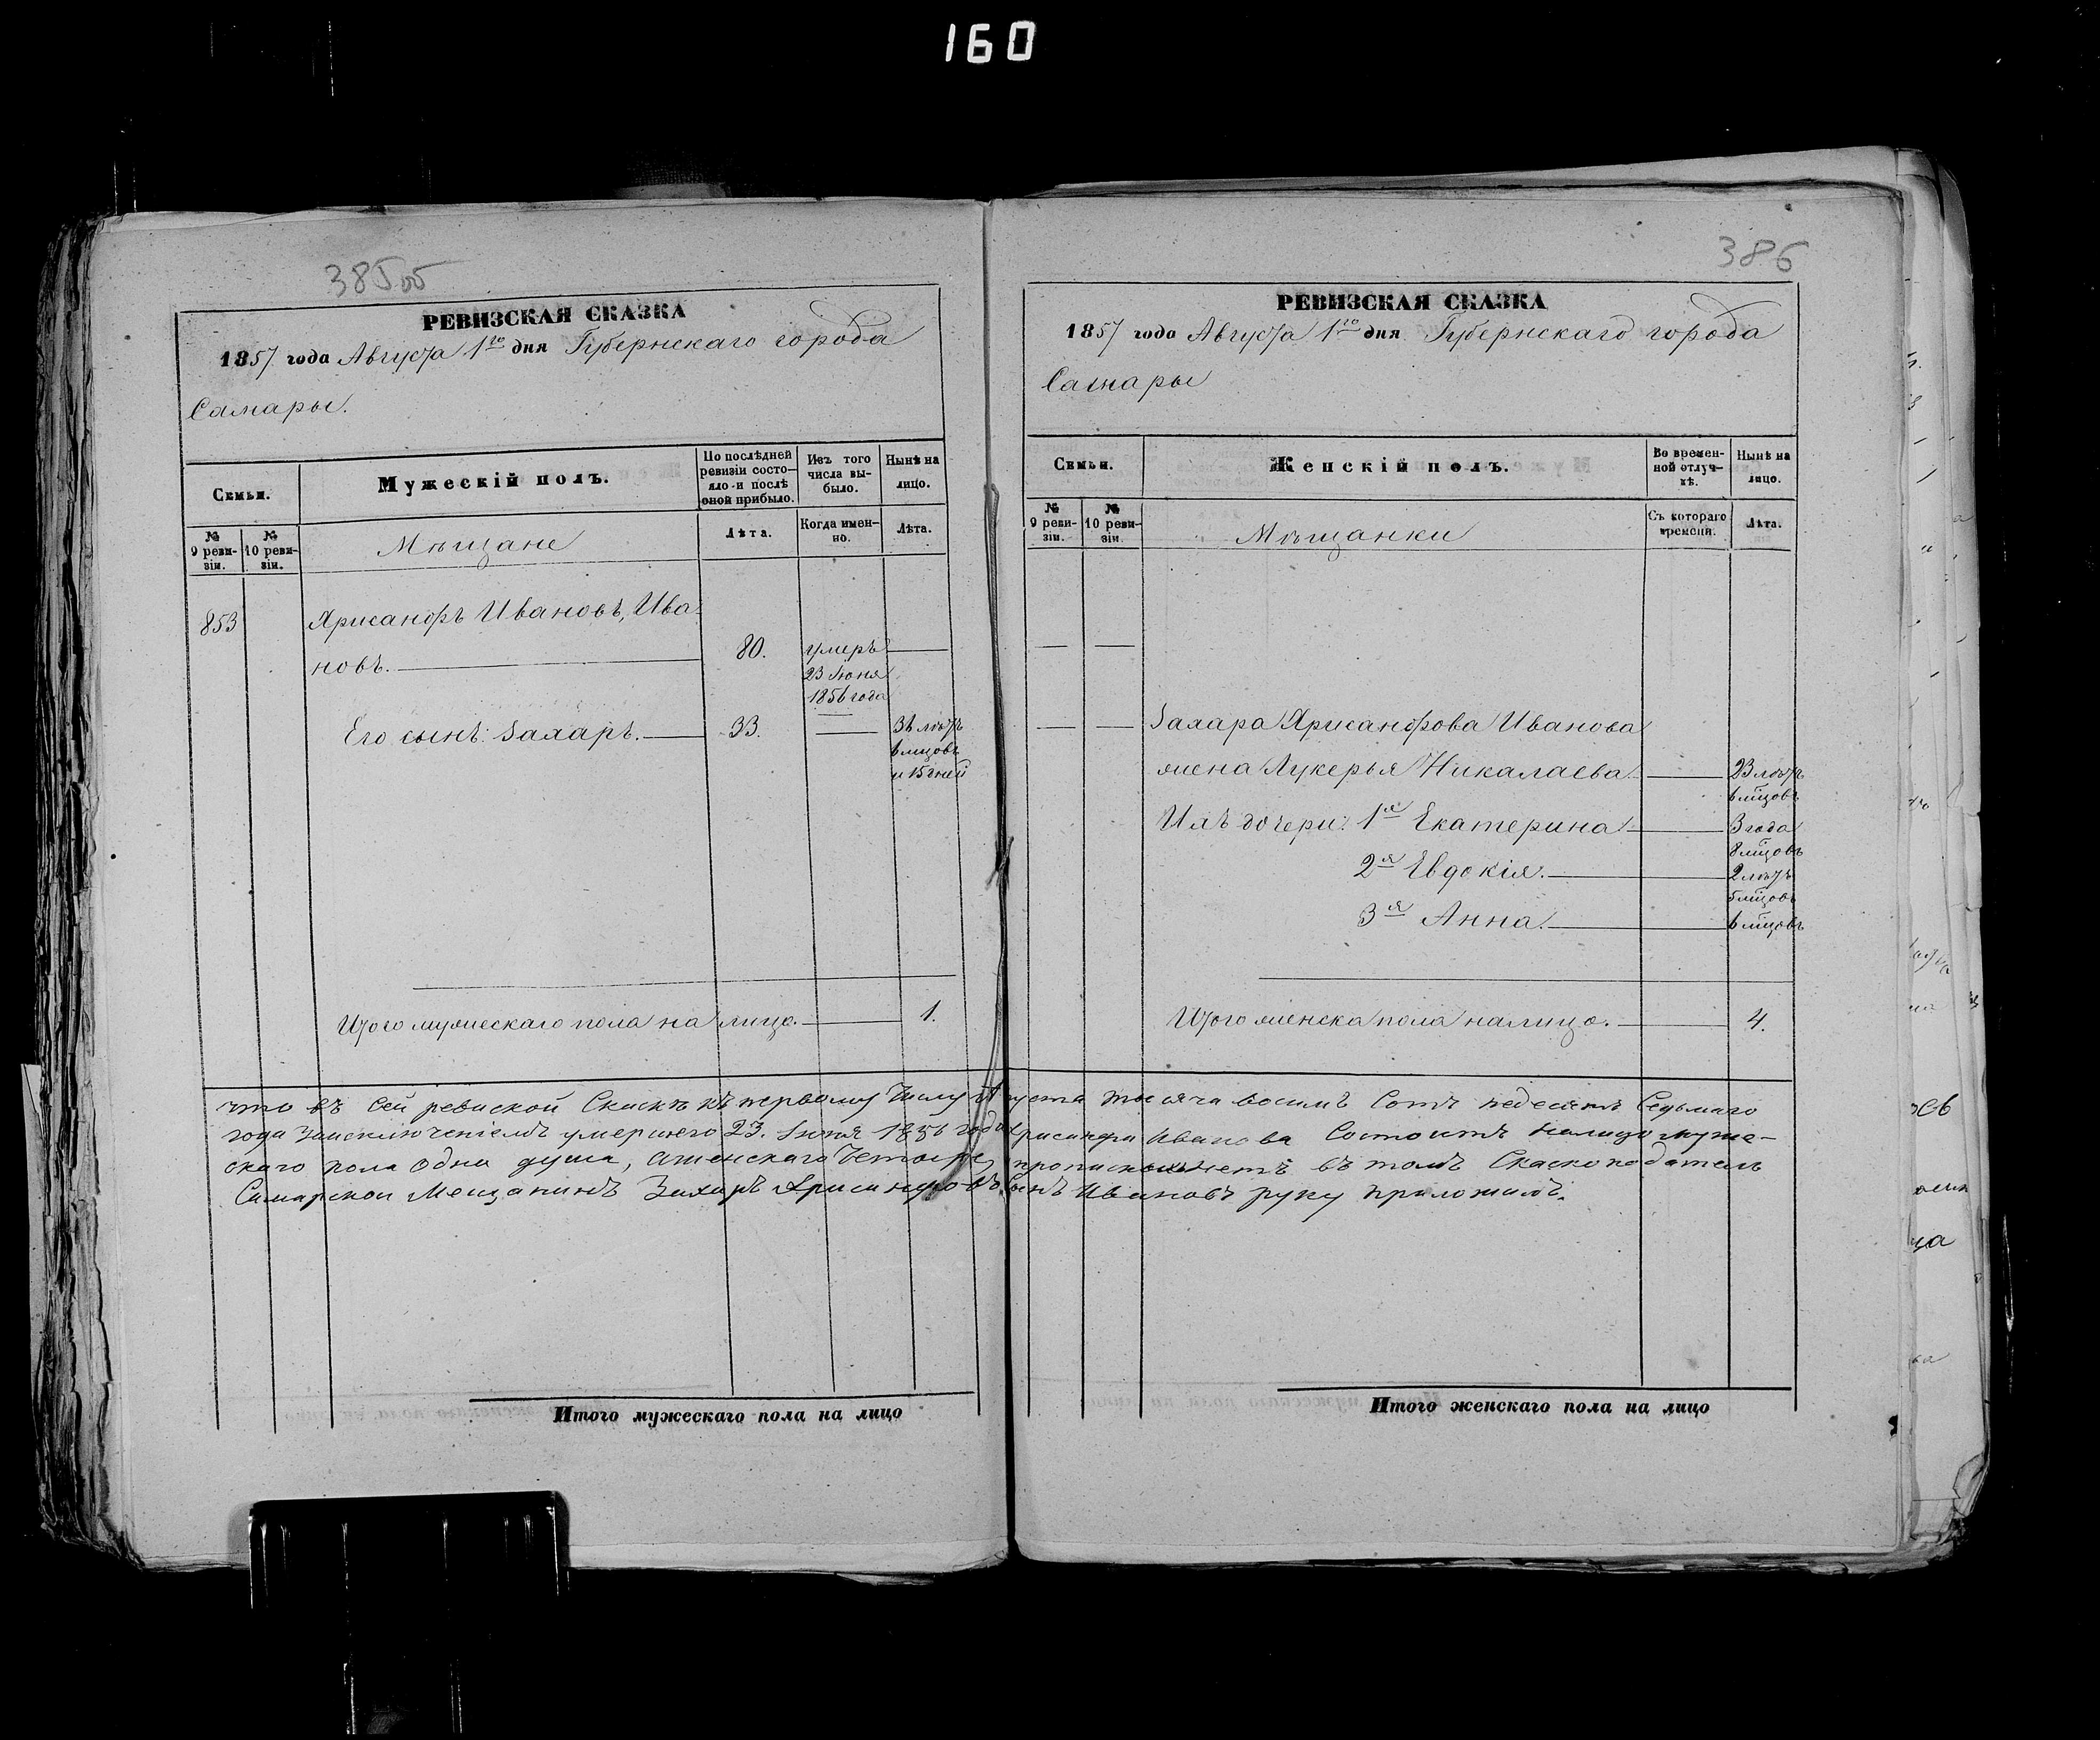 160
385об
РЕВИЗСКАЯ СКАЗКА
1857 года Августа 1го дня Губернскаго города
Самары.
Семьи.
Мужескій полъ.
По последней ревизіи состояло и после оной прибыло.
Изъ того числа выбыло.
Ныне на лицо.
№ 9 ревизіи.
№ 10 ревизіи.
Мѣщане
Лѣта.
Когда именно.
Лѣта.
853
Хрисанфъ Ивановъ, Ива-
новъ.
80.
умеръ
23 Июня
1856 года
Его сынъ: Захаръ.
33.
лѣтъ
мцовъ
и 15 дней
Итого мужескаго пола на лицо.
1.
386
РЕВИЗСКАЯ СКАЗКА
1857 года Августа 1го дня Губернскаго города
Самары
Семьи.
Женскій полъ.
Во временной отлучкѣ.
Нынѣ на лицо.
№ 9 ревизіи.
№ 10 ревизіи.
Мѣщанки
Съ котораго времени.
Лѣта.
Захара Хрисанфова Иванова
жена Лукерья Никалаева.
23 лѣтъ
6 мцовъ
Ихъ дочери: 1я Екатерина
3 года
8 мцовъ
2я Евдокія.
2 лѣтъ
5 мцовъ
3я Анна.
6 мцовъ
Итого женска пола налицо.
4.
что въ сей ревиской Скаскѣ къ первому Числу Августа тысяча восимъ Сотъ педесятъ Седьмаго
года умершего 23. Июня 1856 года Хрисанфа Иванова Состоитъ налицо муже-
скаго пола одна душа, аженскаго Четыре, нетъ въ томъ Скаскоподатель
Самарской Мещанинъ Захаръ Хрисанфовъ Сынъ Ивановъ руку приложилъ.
Итого мужескаго пола на лицо
Итого женскаго пола на лицо